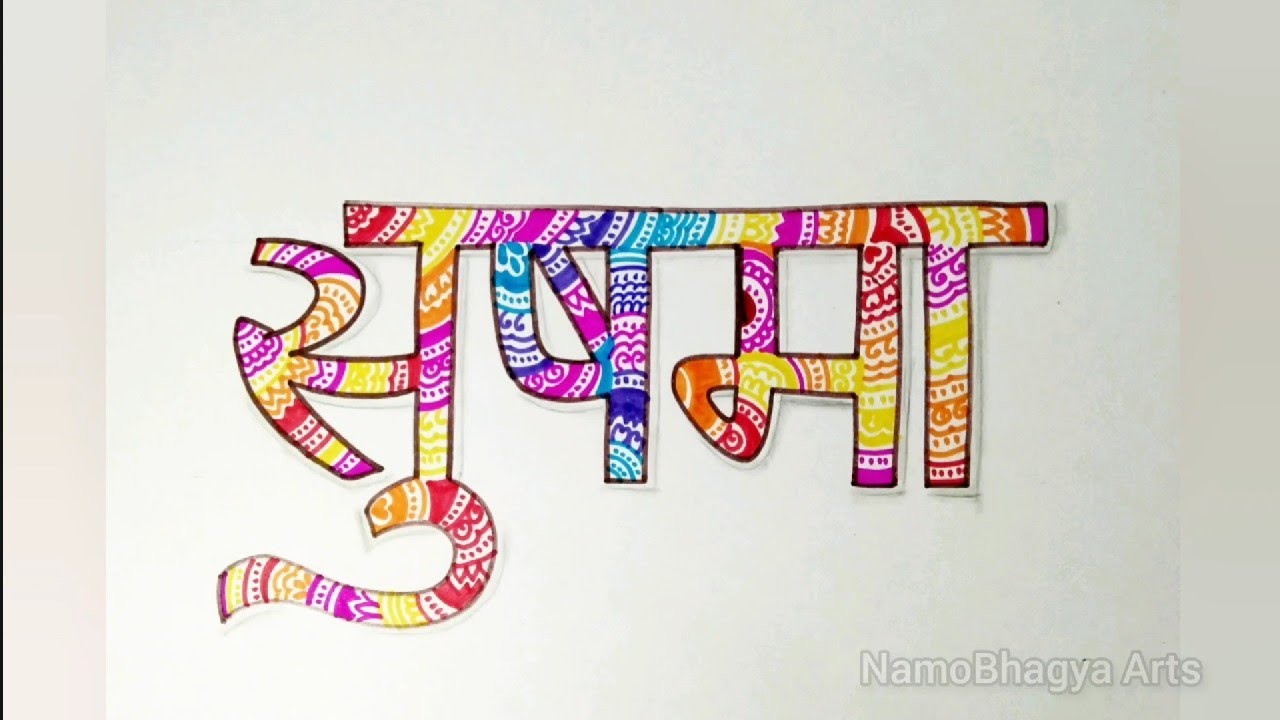 सुषमा
NamoBhagya Arts